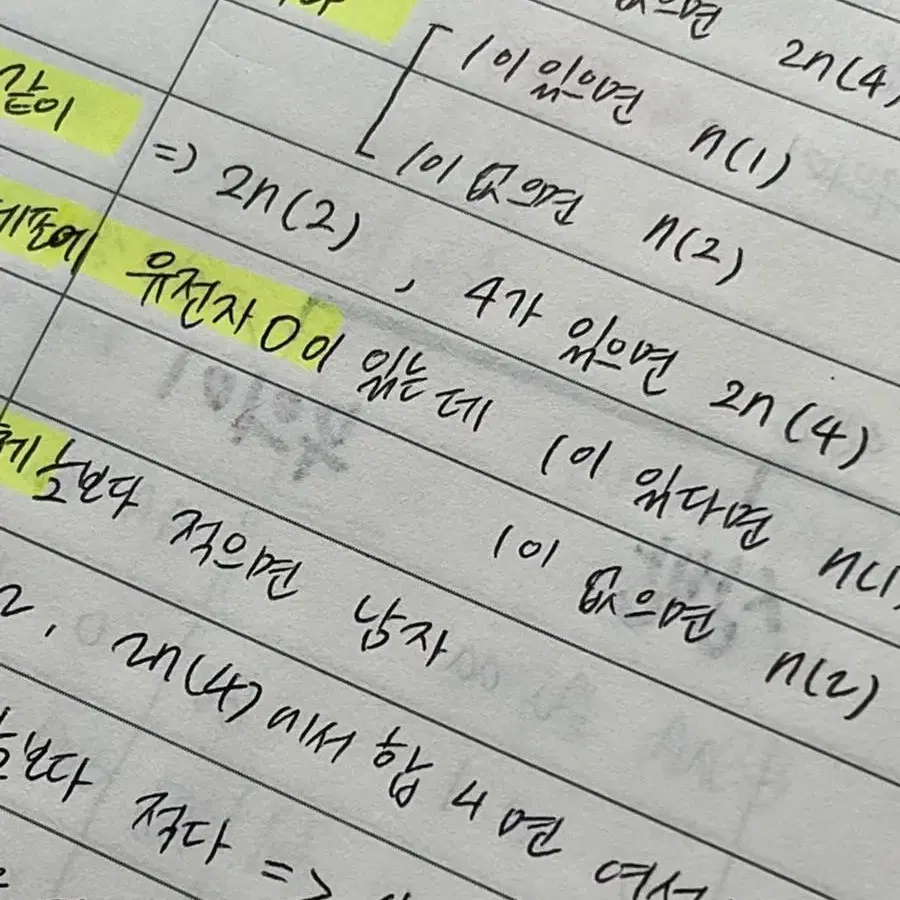 없으면 2n(4)
1이 있으면 n(1)
1이 없으면 n(2)
같이 => 2n(2), 4가 있으면 2n(4)
유전자 0이 있는데 1이 있다면 n(1)
1이 없으면 n(2)
보다 적으면 남자
2, 2n(4)에서 합 4면
보다 적다 =>